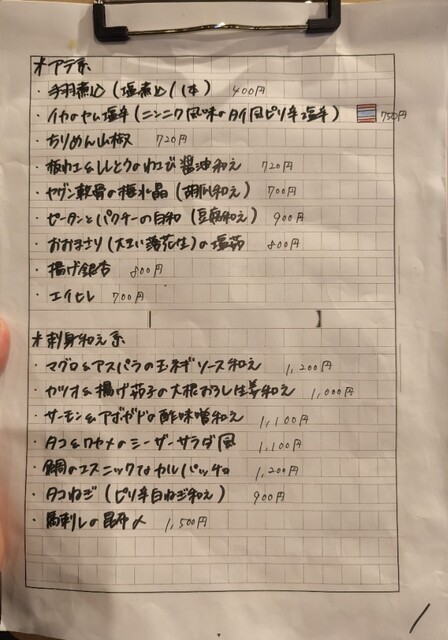 *アテ系
・手羽煮込(塩煮込/1本) 400円
・イカのヤム塩辛(ニンニク風味のタイ風ピリ辛塩辛) 750円
・ちりめん山椒 720円
・板わさ&ししとうのわさび醤油和え 720円
・ヤゲン軟骨の梅水晶(胡瓜和え) 700円
・ピータンとパクチーの白和(豆腐和え) 900円
・おおまさり(大きい落花生)の塩茹 800円
・揚げ銀杏 800円
・エイヒレ 700円
*刺身和え系
・マグロ&アスパラの玉ネギソース和え 1,200円
・カツオ&揚げ茄子の大根おろし生姜和え 1,000円
・サーモン&アボカドの酢味噌和え 1,100円
・タコ&ワカメのシーザーサラダ風 1,100円
・鯛のエスニックなカルパッチョ 1,200円
・タコねぎ(ピリ辛白ねぎ和え) 900円
・馬刺しの昆布〆 1,500円
1